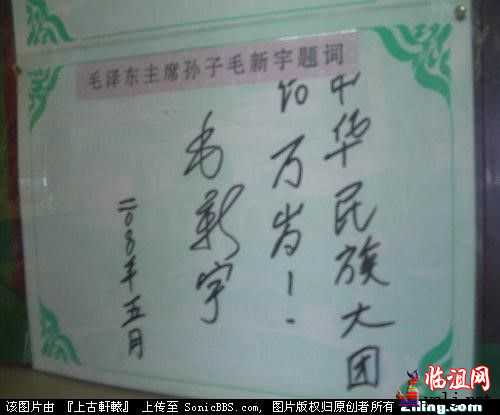 毛泽东主席孙子毛新宇题词
中华民族大团
结万岁！
毛新宇
二00八年五月
临沮网
该图片由 『上古軒轅』 上传至 SonicBBS.com, 图片版权归原创者所有